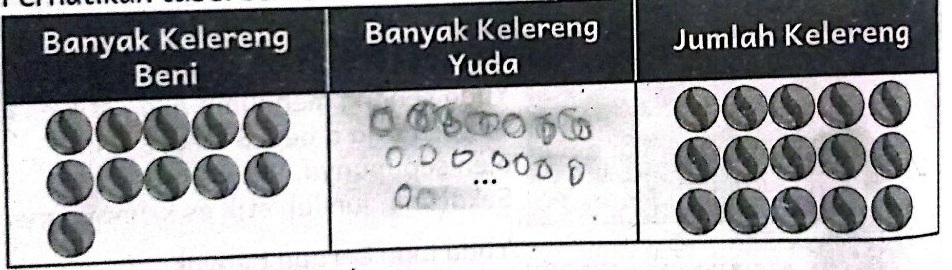 Banyak Kelereng
Beni
Banyak Kelereng
Yuda
Jumlah Kelereng
...